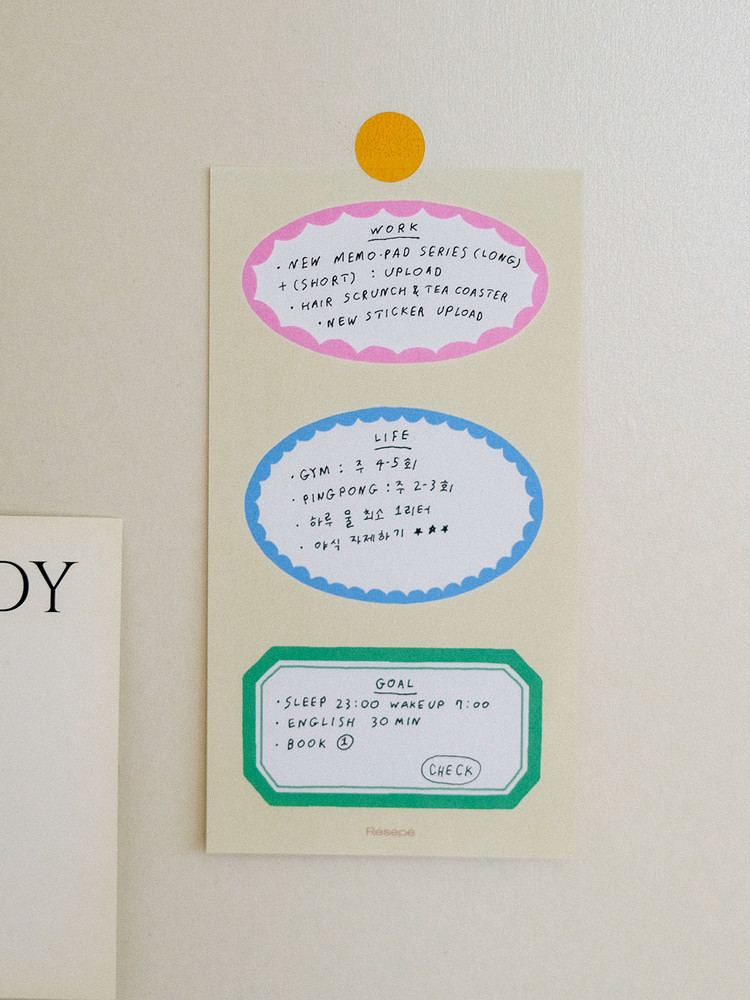 WORK
· NEW MEMO·PAD SERIES (LONG)
+ (SHORT) : UPLOAD
· HAIR SCRUNCH & TEA COASTER
· NEW STICKER UPLOAD
LIFE
· GYM : 주 4-5회
· PINGPONG : 주 2-3회
· 하루 물 최소 1리터
· 야식 자제하기 ★★★
GOAL
· SLEEP 23:00 WAKEUP 7:00
· ENGLISH 30 MIN
· BOOK ①
CHECK
Résépé
DY